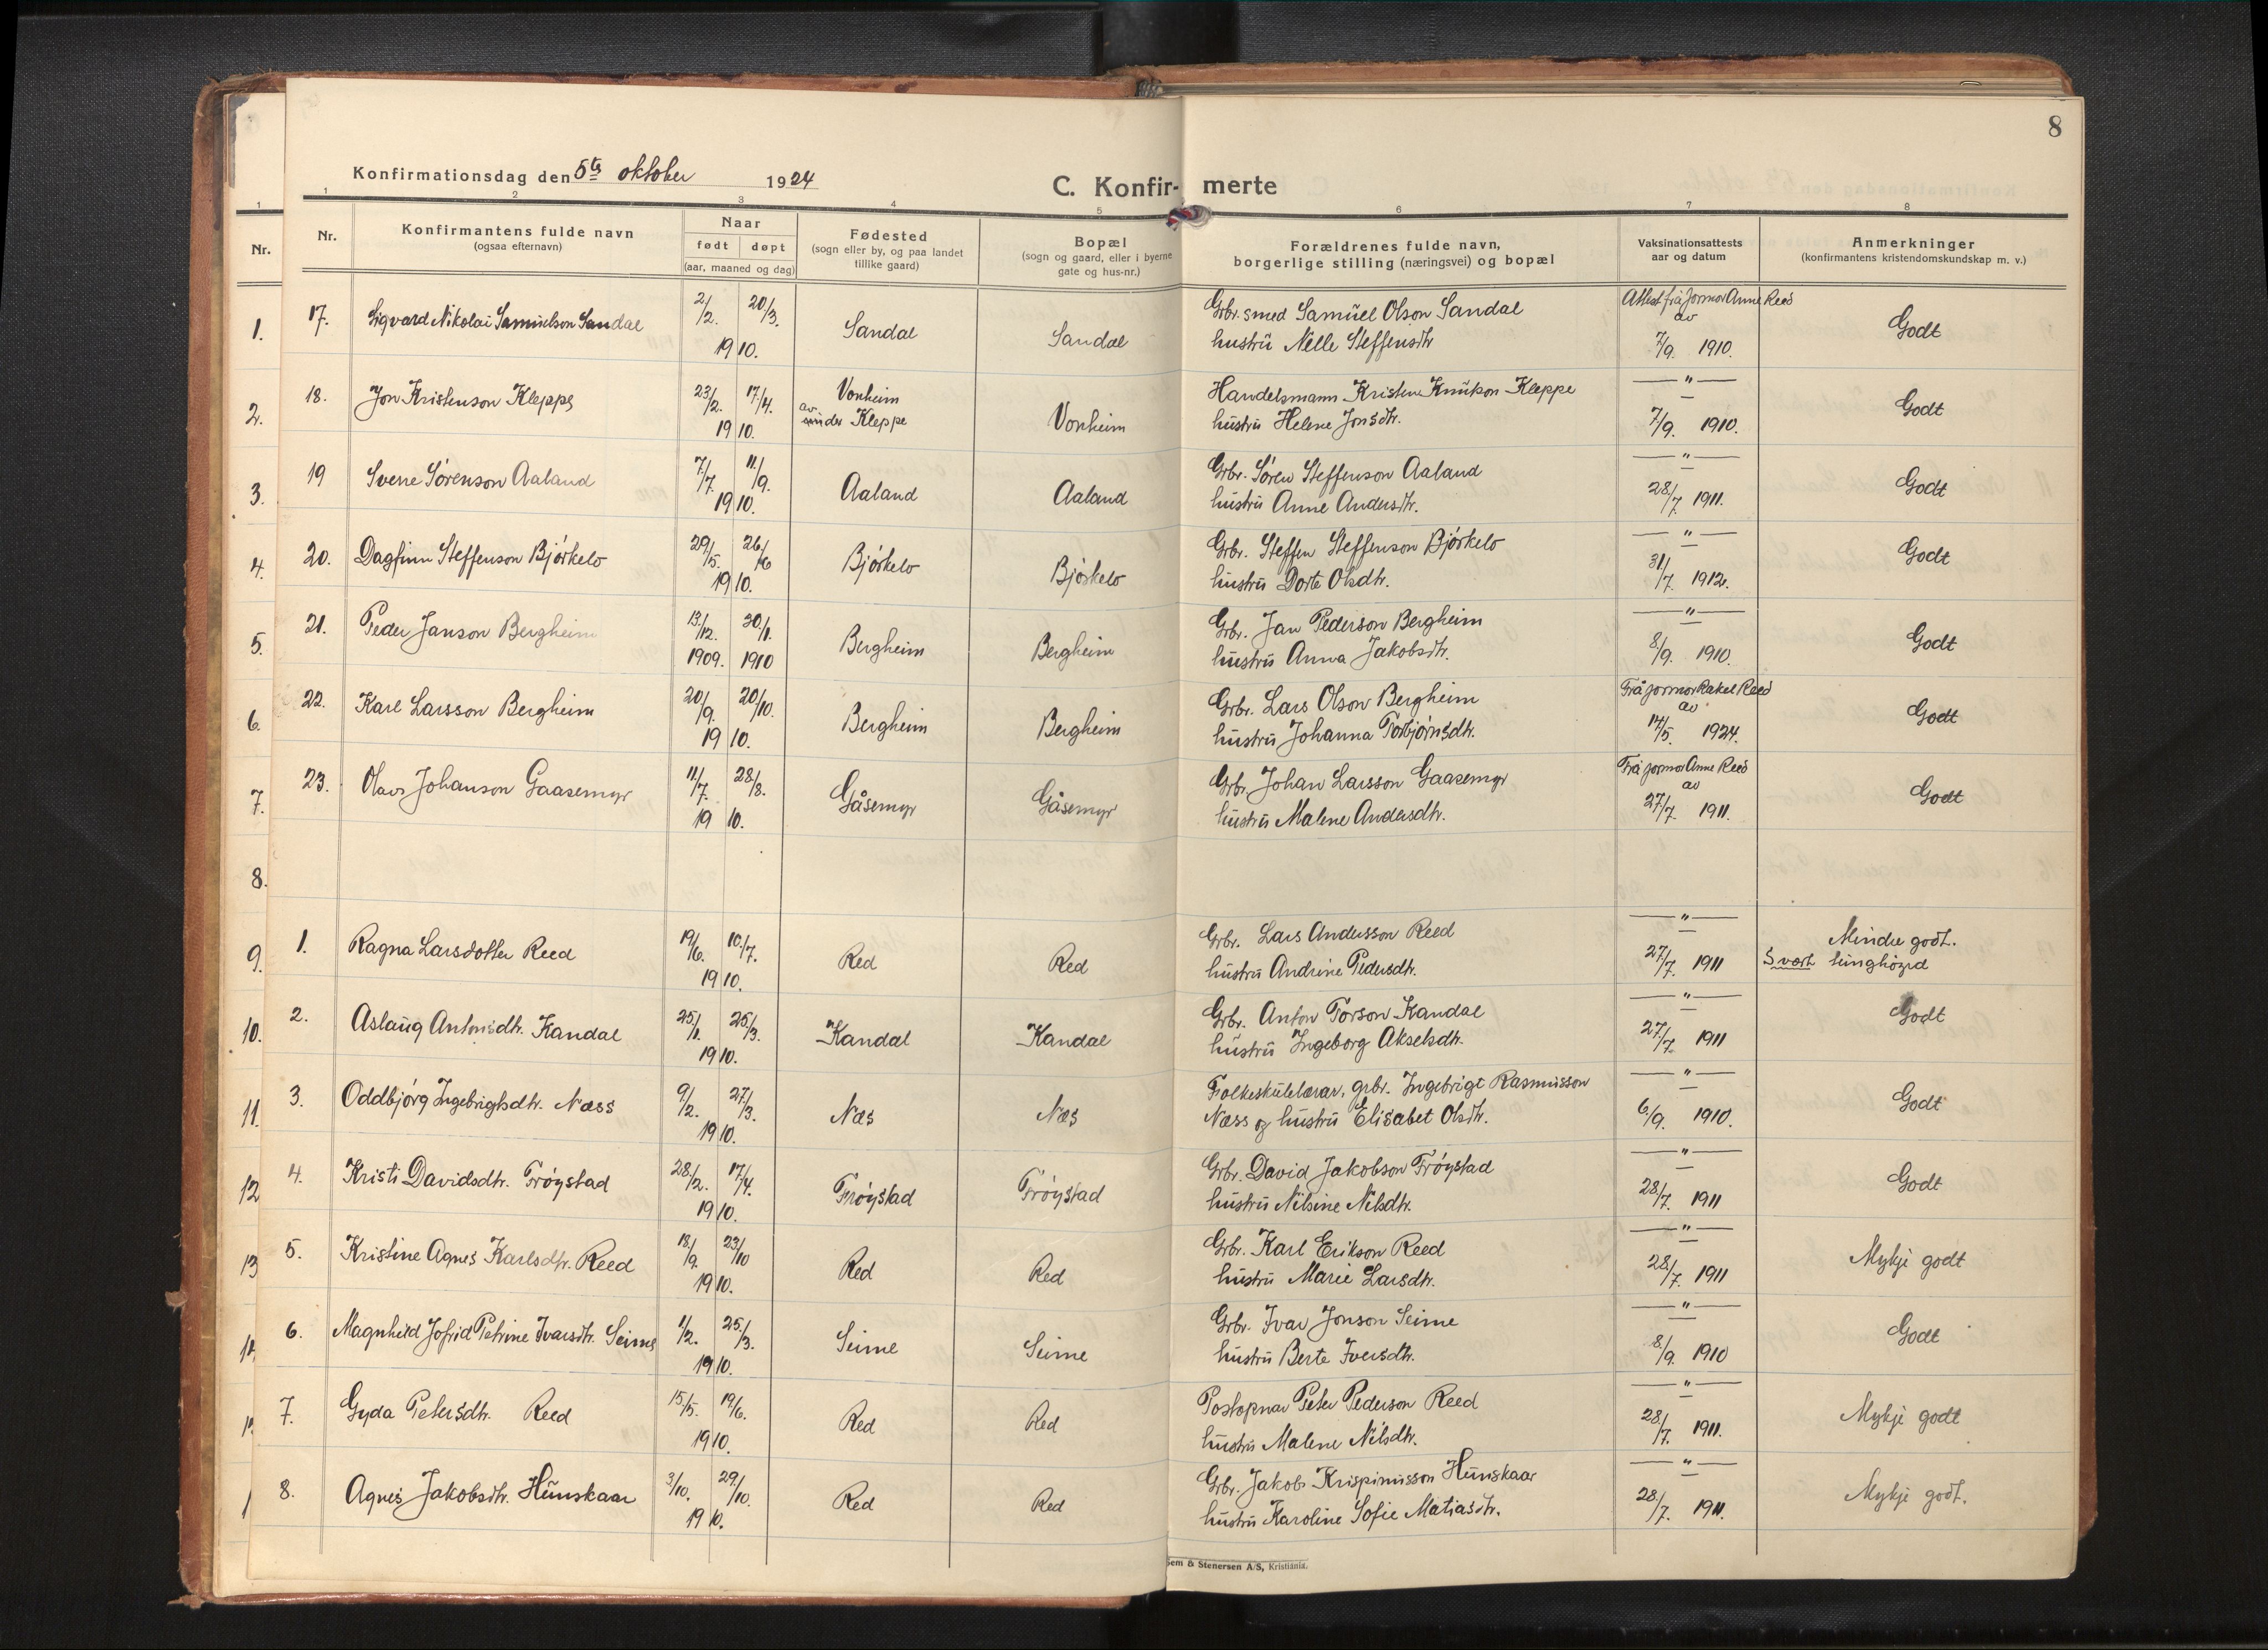 8
Konfirmationsdag den 5te oktober 1924
C. Konfir- merte
1 1 2 3 4 5 6 7 8
Nr. Nr. Konfirmantens fulde navn (ogsaa efternavn)
Naar
født døpt
(aar, maaned og dag)
Fødested (sogn eller by, og paa landet tillike gaard)
Bopæl (sogn og gaard, eller i byerne gate og hus-nr.)
Forældrenes fulde navn, borgerlige stilling (næringsvei) og bopæl
Vaksinationsattests aar og datum
Anmerkninger (konfirmantens kristendomskundskap m. v.)
1. 17. Sigvard Nikolai Samuelson Sandal 2/2. 20/3. 1910. Sandal Sandal
Grbr. smed Samuel Olson Sandal
hustru Nelle Steffensdtr
Attest frå jormor Anne Reed
av
7/9. 1910. Godt
2. 18. Jon Kristenson Kleppe 23/2. 17/4. 1910. Vonheim
av
under Kleppe Vonheim
Handelsmann Kristen Knutson Kleppe
hustru Helene Jonsdtr.
— " —
7/9. 1910. Godt
3. 19 Sverre Sørenson Aaland 7/7. 11/9. 1910. Aaland Aaland
Grbr. Søren Steffenson Aaland
hustru Anne Andersdtr.
— " —
28/7. 1911. Godt
4. 20. Dagfinn Steffenson Bjørkelo 29/5. 26/6 1910. Bjørkelo Bjørkelo
Grbr. Steffen Steffenson Bjørkelo
hustru Dorte Olsdtr.
— " —
31/7. 1912. Godt
5. 21. Peder Janson Bergheim 13/12. 1909. 30/1. 1910 Bergheim Bergheim
Grbr. Jan Pederson Bergheim
hustru Anna Jakobsdtr.
— " —
8/9. 1910. Godt
6. 22. Karl Larsson Bergheim 20/9. 20/10. 1910. Bergheim Bergheim
Grbr. Lars Olson Bergheim
hustru Johanna Torbjørnsdtr.
Frå jormor Rakel Reed
av
14/5. 1924. Godt
7. 23. Olav Johanson Gaasemyr 11/7. 28/8. 1910. Gåsemyr Gåsemyr
Grbr. Johan Larsson Gaasemyr
hustru Malene Andersdtr.
Frå jormor Anne Reed
av
27/7. 1911. Godt
8.
9. 1. Ragna Larsdotter Reed 19/6. 10/7. 1910. Red Red
Grbr. Lars Andersson Reed
hustru Andrine Pedersdtr.
— " —
27/7. 1911 Mindre godt.
Svært tunghøyrd
10. 2. Aslaug Antonsdtr. Kandal 25/1. 25/3. 1910. Kandal Kandal
Grbr. Anton Torson Kandal
hustru Ingeborg Akselsdtr.
— " —
27/7. 1911 Godt
11. 3. Oddbjørg Ingebrigtsdtr. Næss 9/2. 27/3. 1910. Næs Næs
Folkeskulelærar, grbr. Ingebrigt Rasmusson
Næss og hustru Elisabet Olsdtr.
— " —
6/9. 1910. Godt
12 4. Kristi Davidsdtr. Frøystad 28/2. 17/4. 1910. Frøystad Frøystad
Grbr. David Jakobson Frøystad
hustru Nilsine Nilsdtr.
— " —
28/7. 1911 Godt
13 5. Kristine Agnes Karlsdtr. Reed 18/9. 23/10 1910. Red Red
Grbr. Karl Erikson Reed
hustru Marie Larsdtr.
— " —
28/7. 1911 Mykje godt
6. Magnhild Jofrid Petrine Ivarsdtr. Seime 1/2. 25/3. 1910. Seime Seime
Grbr. Ivar Jonson Seime
hustru Berte Iversdtr.
— " —
8/9. 1910 Godt
7. Gyda Petersdtr. Reed 15/5. 19/6. 1910. Red Red
Postopnar Peter Pederson Reed
hustru Malene Nilsdtr.
— " —
28/7. 1911. Mykje godt
8. Agnes Jakobsdtr. Hunskaar 3/10. 29/10. 1910. Red Red
Grbr. Jakob Krispinusson Hunskaar
hustru Karoline Sofie Matiasdtr.
— " —
28/7. 1911. Mykje godt.
Sem & Stenersen A/S, Kristiania.